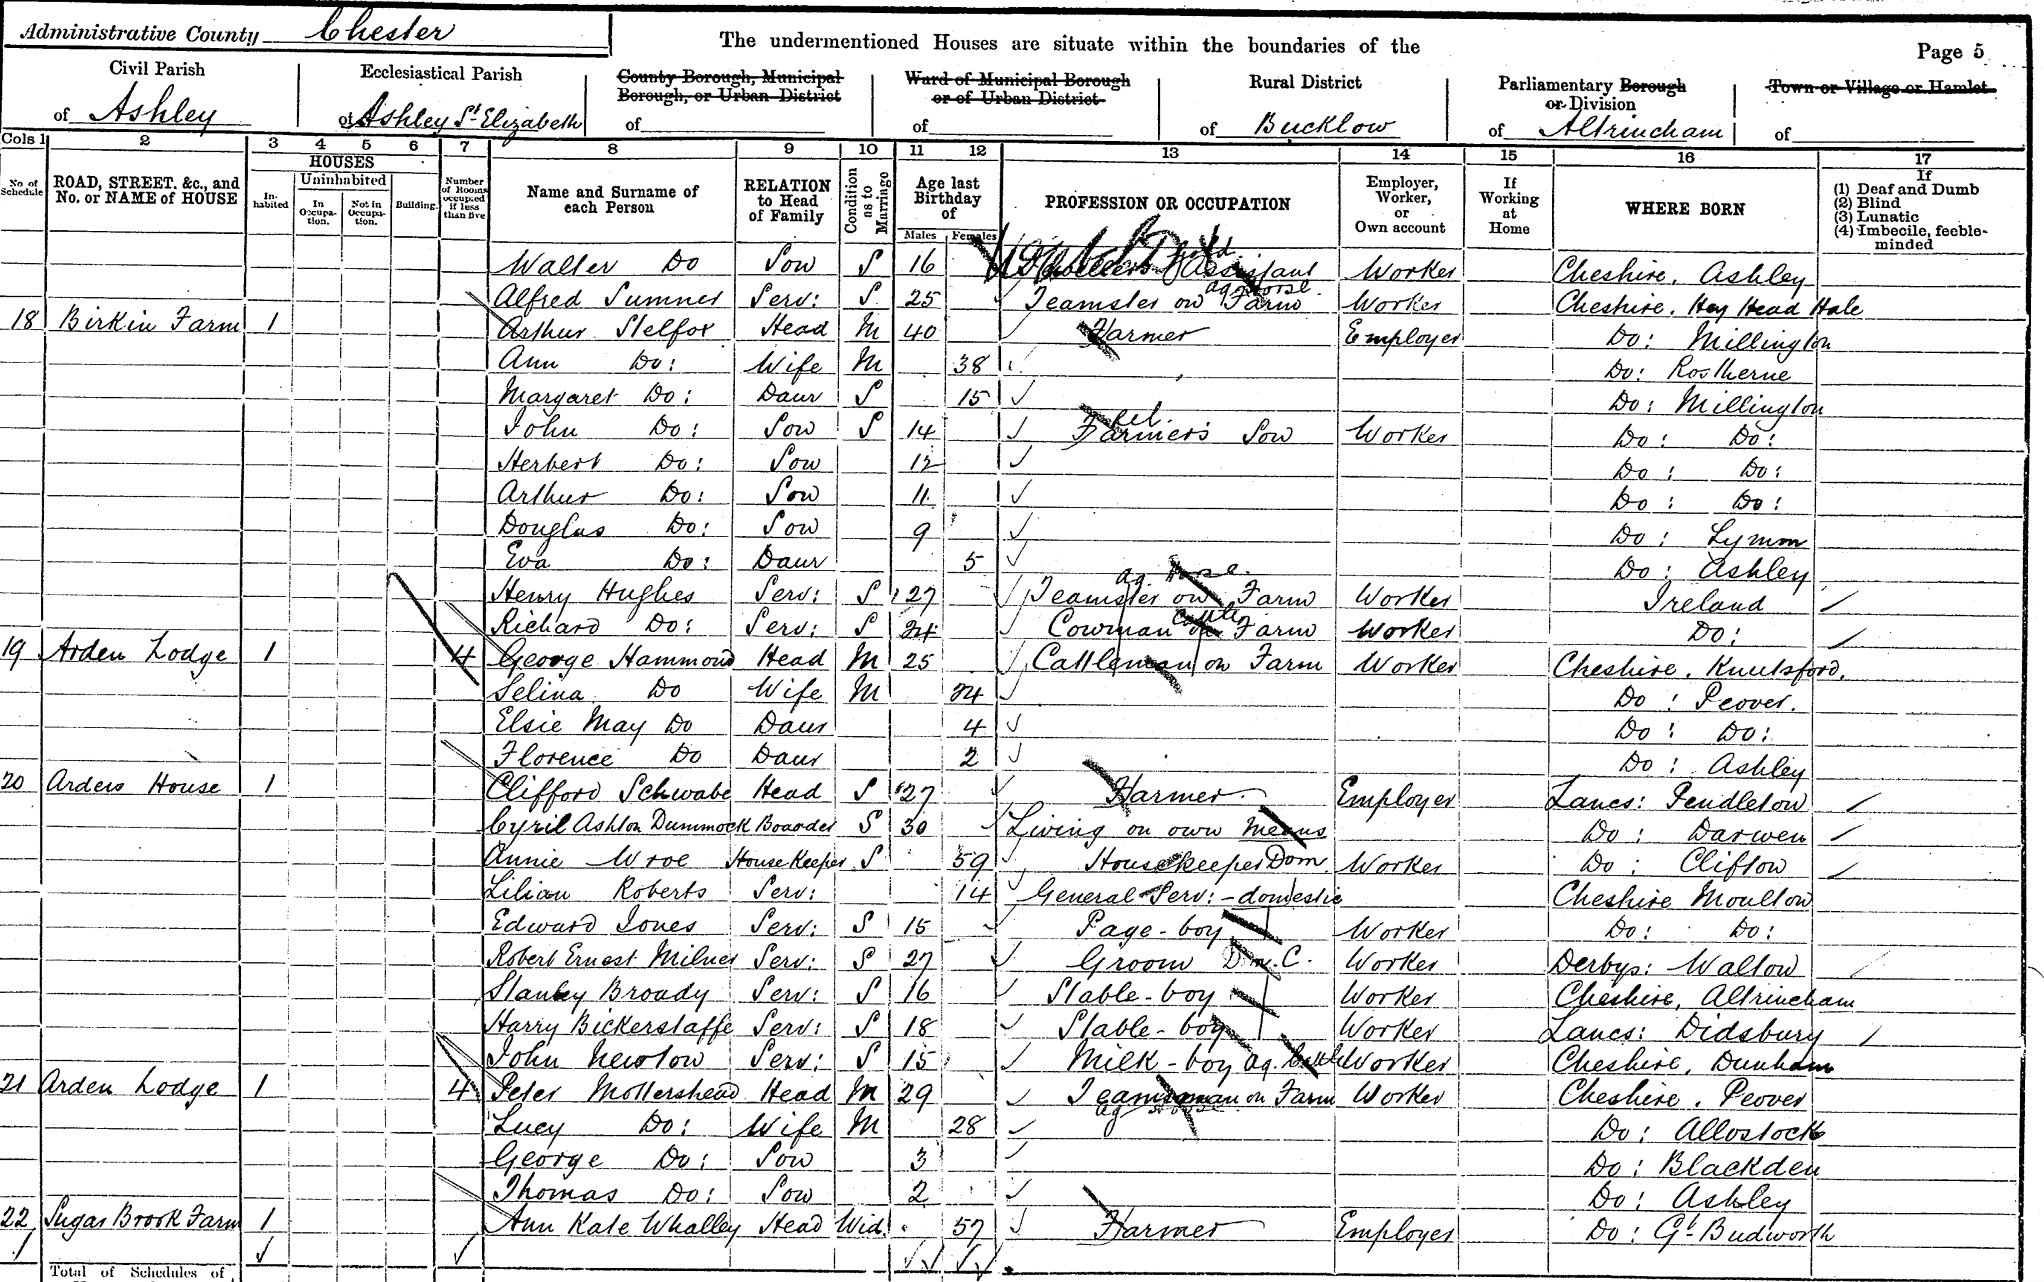 Administrative County Chester
The undermentioned Houses are situate within the boundaries of the
Page 5
Civil Parish of Ashley
Ecclesiastical Parish of Ashley St Elizabeth
County Borough, Municipal Borough, or Urban District of
Ward of Municipal Borough or of Urban District of
Rural District of Bucklow
Parliamentary Borough or Division of Altrincham
Town or Village or Hamlet of
Cols 1 2 3 4 5 6 7 8 9 10 11 12 13 14 15 16 17
No of Schedule
ROAD, STREET, &c., and No. or NAME of HOUSE
HOUSES
Inhabited
Uninhabited
In Occupation.
Not in Occupation.
Building.
Number of Rooms occupied if less than five
Name and Surname of each Person
RELATION to Head of Family
Condition as to Marriage
Age last Birthday of
Males Females
PROFESSION OR OCCUPATION
Employer, Worker, or Own account
If Working at Home
WHERE BORN
If
(1) Deaf and Dumb
(2) Blind
(3) Lunatic
(4) Imbecile, feeble-minded
Walter Do Son S 16 Assistant Worker Cheshire, Ashley
Alfred Sumner Serv: S 25 Teamster on Farm ag horse. Worker Cheshire. Hey Head Hale
18 Birkin Farm 1 Arthur Stelfox Head M 40 Farmer Employer Do: Millington
Ann Do: Wife M 38 Do: Rostherne
Margaret Do: Daur S 15 Do: Millington
John Do: Son S 14 Farmer's Son Worker Do: Do:
Herbert Do: Son 12 Do: Do:
Arthur Do: Son 11 Do: Do:
Douglas Do: Son 9 Do: Lymm
Eva Do: Daur 5 Do: Ashley
Henry Hughes Serv: S 27 Teamster on Farm ag. Horse. Worker Ireland
Richard Do: Serv: S Cowman on Farm Cattle Worker Do:
19 Arden Lodge 1 4 George Hammond Head M 25 Cattleman on Farm Worker Cheshire, Knutsford.
Selina Do Wife M 24 Do: Peover.
Elsie May Do Daur 4 Do: Do:
Florence Do Daur 2 Do: Ashley
20 Arden House 1 Clifford Schwabe Head S 27 Farmer Employer Lancs: Pendleton
Cyril Ashton Dummock Boarder S 30 Living on own Means Do: Darwen
Annie Wroe House Keeper S 59 Housekeeper Dom Worker Do: Clifton
Lilian Roberts Serv: 14 General Serv: - domestic Cheshire Moulton
Edward Jones Serv: S 15 Page-boy Worker Do: Do:
Robert Ernest Milner Serv: S 27 Groom Worker Derbys: Walton
Stanley Broady Serv: S 16 Stable-boy Worker Cheshire, Altrincham
Harry Bickerstaffe Serv: S 18 Stable-boy Worker Lancs: Didsbury
John Newton Serv: S 15 Milk-boy ag. Worker Cheshire, Dunham
21 Arden Lodge 1 4 Peter Mottershead Head M 29 Teamsman on Farm Worker Cheshire. Peover
Lucy Do: Wife M 28 ag Do: Allostock
George Do: Son 3 Do: Blackden
Thomas Do: Son 2 Do: Ashley
22 Sugar Brook Farm 1 Ann Kate Whalley Head Wid. 57 Farmer Employer Do: Gt Budworth
Total of Schedules of